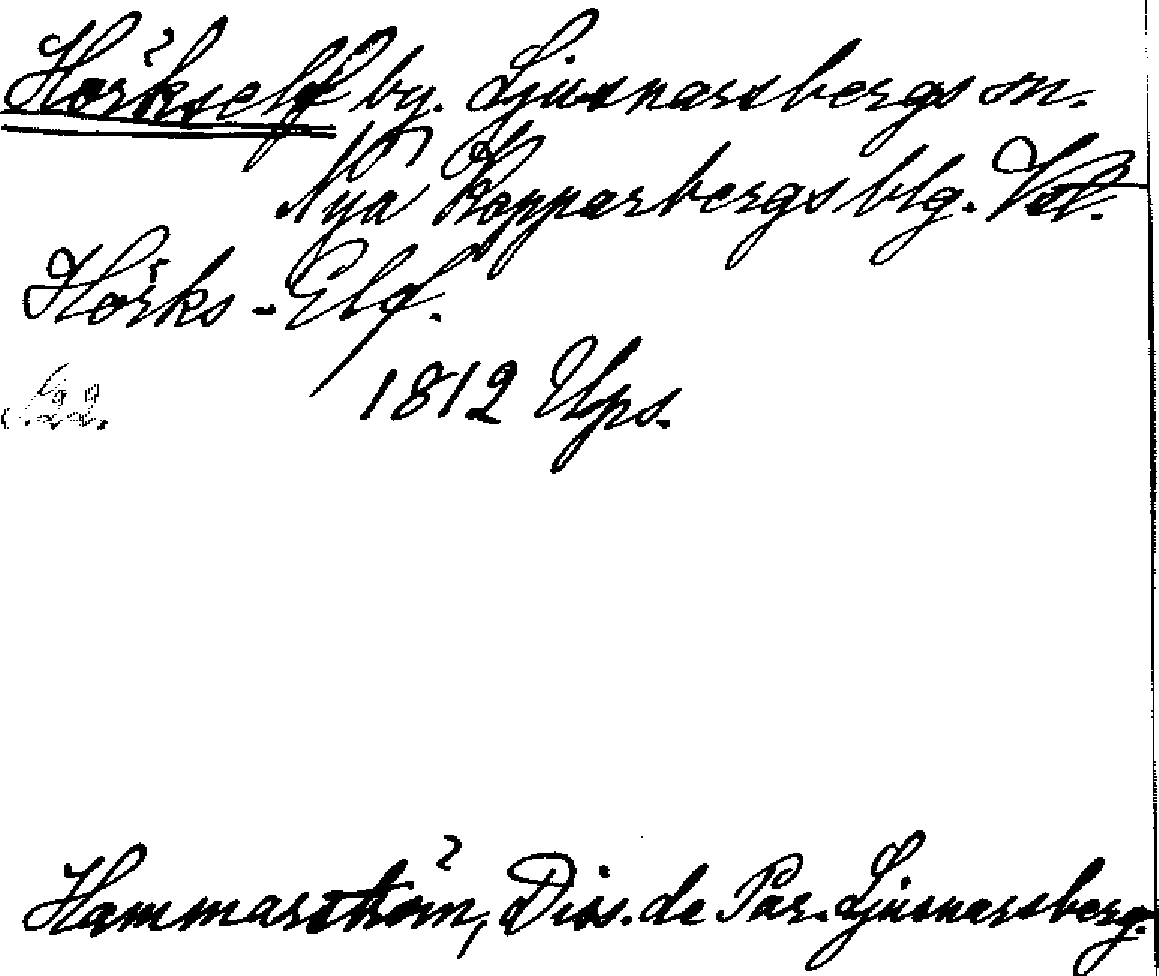 Hörkself by. Ljusnarsbergs sn.
Nya Kopparbergs blg. Vstm.
Hörks-Elf.
1812 Ups.
Hammarström, Diss. de Par. Ljusnarsberg.